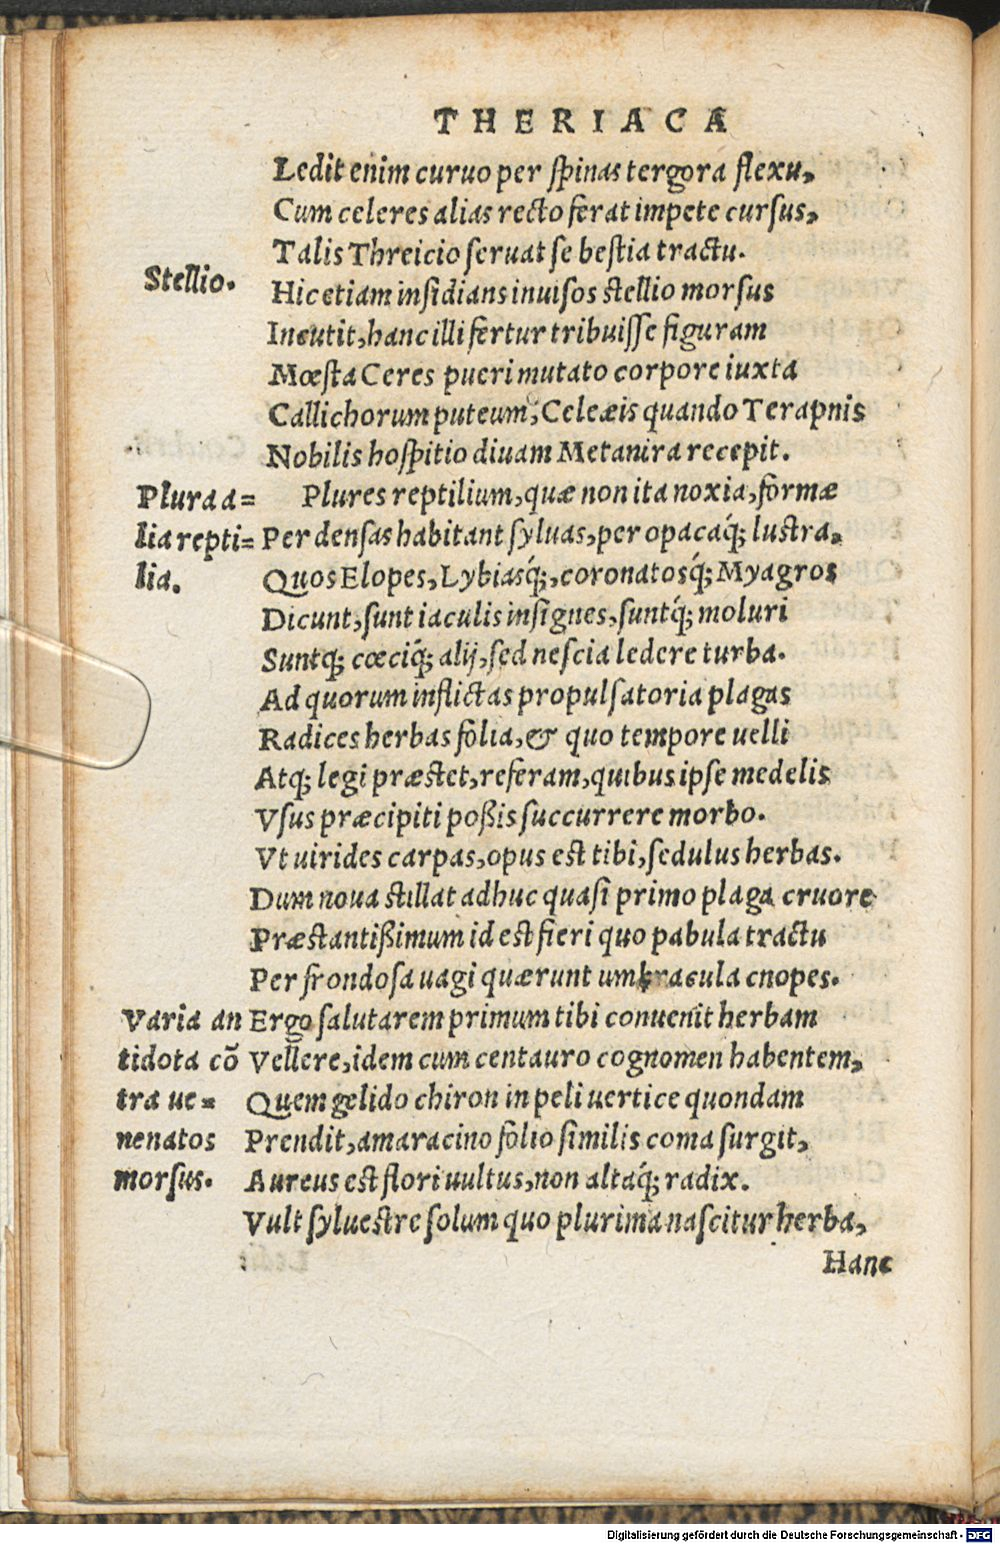 THERIACA
Ledit enim curuo per spinas tergora flexu,
Cum celeres alias recto ferat impete cursus,
Talis Threicio seruat se bestia tractu.
Stellio.
Hic etiam insidians inuisos stellio morsus
Incutit, hanc illi fertur tribuisse figuram
Mœsta Ceres pueri mutato corpore iuxta
Callichorum puteum, Celeæis quando Terapnis
Nobilis hospitio diuam Metanira recepit.
Plura a=
lia repti=
lia.
Plures reptilium, quæ non ita noxia, formæ
Per densas habitant syluas, per opacaq́; lustra,
Quos Elopes, Lybiasq́;, coronatosq́; Myagros
Dicunt, sunt iaculis insignes, suntq́; moluri
Suntq; cœciq́; alij, sed nescia ledere turba.
Ad quorum inflictas propulsatoria plagas
Radices herbas folia, & quo tempore uelli
Atq; legi præstet, referam, quibus ipse medelis
Vsus præcipiti poßis succurrere morbo.
Vt uirides carpas, opus est tibi, sedulus herbas.
Dum noua stillat adhuc quasi primo plaga cruore
Præstantißimum id est fieri quo pabula tractu
Per frondosa uagi quærunt umbracula cnopes.
Varia an
tidota cõ
tra ue=
nenatos
morsus.
Ergo salutarem primum tibi conuenit herbam
Vellere, idem cum centauro cognomen habentem,
Quem gelido chiron in peli uertice quondam
Prendit, amaracino folio similis coma surgit,
Aureus est flori uultus, non altaq́; radix.
Vult syluestre solum quo plurima nascitur herba,
Hanc
Digitalisierung gefördert durch die Deutsche Forschungsgemeinschaft - DFG